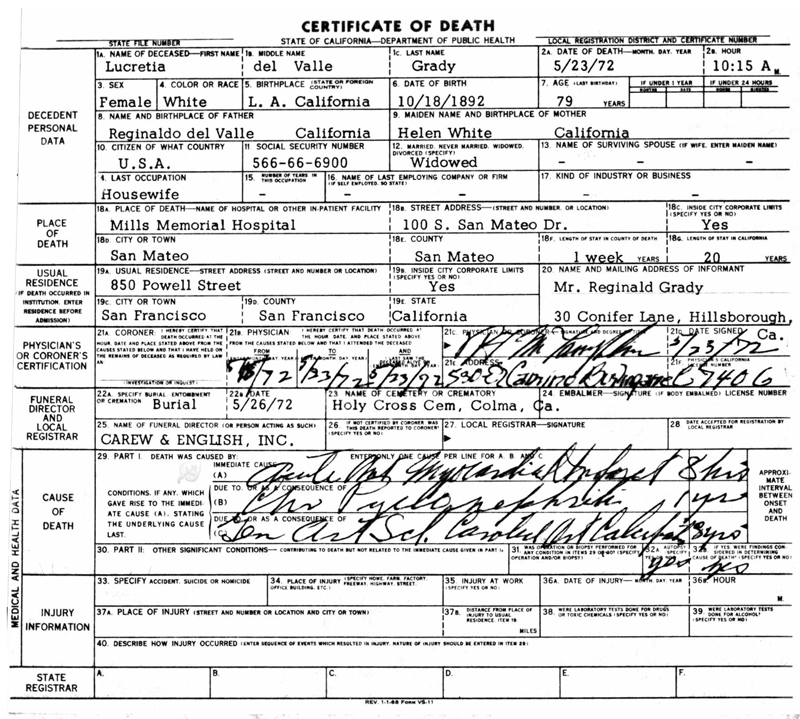 CERTIFICATE OF DEATH
STATE FILE NUMBER STATE OF CALIFORNIA—DEPARTMENT OF PUBLIC HEALTH LOCAL REGISTRATION DISTRICT AND CERTIFICATE NUMBER
DECEDENT PERSONAL DATA
1A. NAME OF DECEASED—FIRST NAME 1B. MIDDLE NAME 1C. LAST NAME 2A. DATE OF DEATH—MONTH, DAY, YEAR 2B. HOUR
Lucretia del Valle Grady 5/23/72 10:15 A M.
3. SEX 4. COLOR OR RACE 5. BIRTHPLACE (STATE OR FOREIGN COUNTRY) 6. DATE OF BIRTH 7. AGE (LAST BIRTHDAY) IF UNDER 1 YEAR IF UNDER 24 HOURS
MONTHS DAYS HOURS MINUTES
Female White L. A. California 10/18/1892 79 YEARS
8. NAME AND BIRTHPLACE OF FATHER 9. MAIDEN NAME AND BIRTHPLACE OF MOTHER
Reginaldo del Valle California Helen White California
10. CITIZEN OF WHAT COUNTRY 11. SOCIAL SECURITY NUMBER 12. MARRIED, NEVER MARRIED, WIDOWED, DIVORCED (SPECIFY) 13. NAME OF SURVIVING SPOUSE (IF WIFE, ENTER MAIDEN NAME)
U.S.A. 566-66-6900 Widowed - - -
4. LAST OCCUPATION 15. NUMBER OF YEARS IN THIS OCCUPATION 16. NAME OF LAST EMPLOYING COMPANY OR FIRM (IF SELF EMPLOYED, SO STATE) 17. KIND OF INDUSTRY OR BUSINESS
Housewife - - - - -
PLACE OF DEATH
18A. PLACE OF DEATH—NAME OF HOSPITAL OR OTHER IN-PATIENT FACILITY 18B. STREET ADDRESS—(STREET AND NUMBER, OR LOCATION) 18C. INSIDE CITY CORPORATE LIMITS (SPECIFY YES OR NO)
Mills Memorial Hospital 100 S. San Mateo Dr. Yes
18D. CITY OR TOWN 18E. COUNTY 18F. LENGTH OF STAY IN COUNTY OF DEATH 18G. LENGTH OF STAY IN CALIFORNIA
San Mateo San Mateo 1 week YEARS 20 YEARS
USUAL RESIDENCE
(IF DEATH OCCURRED IN INSTITUTION, ENTER RESIDENCE BEFORE ADMISSION)
19A. USUAL RESIDENCE—STREET ADDRESS (STREET AND NUMBER OR LOCATION) 19B. INSIDE CITY CORPORATE LIMITS (SPECIFY YES OR NO) 20. NAME AND MAILING ADDRESS OF INFORMANT
850 Powell Street Yes Mr. Reginald Grady
19C. CITY OR TOWN 19D. COUNTY 19E. STATE
San Francisco San Francisco California 30 Conifer Lane, Hillsborough,
Ca.
PHYSICIAN'S OR CORONER'S CERTIFICATION
21A. CORONER: I HEREBY CERTIFY THAT DEATH OCCURRED AT THE HOUR, DATE AND PLACE STATED ABOVE FROM THE CAUSES STATED BELOW AND THAT I HAVE HELD ON THE REMAINS OF DECEASED AS REQUIRED BY LAW AN
(INVESTIGATION OR INQUEST)
21B. PHYSICIAN I HEREBY CERTIFY THAT DEATH OCCURRED AT THE HOUR, DATE, AND PLACE STATED ABOVE FROM THE CAUSES STATED BELOW AND THAT I ATTENDED THE DECEASED
FROM TO AND
5/23/72
21C. PHYSICIAN OR CORONER—SIGNATURE AND DEGREE 21D. DATE SIGNED
5/23/72
21E. ADDRESS 21F. PHYSICIAN'S CALIFORNIA LICENSE NUMBER
530 El Camino Burlingame C7406
FUNERAL DIRECTOR AND LOCAL REGISTRAR
22A. SPECIFY BURIAL, ENTOMBMENT OR CREMATION 22B. DATE 23. NAME OF CEMETERY OR CREMATORY 24. EMBALMER—SIGNATURE (IF BODY EMBALMED) LICENSE NUMBER
Burial 5/26/72 Holy Cross Cem, Colma, Ca.
25. NAME OF FUNERAL DIRECTOR (OR PERSON ACTING AS SUCH) 26. IF NOT CERTIFIED BY CORONER, WAS THIS DEATH REPORTED TO CORONER? (SPECIFY YES OR NO) 27. LOCAL REGISTRAR—SIGNATURE 28. DATE ACCEPTED FOR REGISTRATION BY LOCAL REGISTRAR
CAREW & ENGLISH, INC.
MEDICAL AND HEALTH DATA
CAUSE OF DEATH
29. PART I. DEATH WAS CAUSED BY: ENTER ONLY ONE CAUSE PER LINE FOR A, B, AND C
IMMEDIATE CAUSE
(A) Acute Myocardial Infarct 8 hrs
CONDITIONS, IF ANY, WHICH GAVE RISE TO THE IMMEDIATE CAUSE (A), STATING THE UNDERLYING CAUSE LAST.
DUE TO, OR AS A CONSEQUENCE OF
(B) Chr Pyelonephritis 1 yr
DUE TO, OR AS A CONSEQUENCE OF
(C) Gen Art Scl. yrs
APPROXIMATE INTERVAL BETWEEN ONSET AND DEATH
30. PART II: OTHER SIGNIFICANT CONDITIONS—CONTRIBUTING TO DEATH BUT NOT RELATED TO THE IMMEDIATE CAUSE GIVEN IN PART I. 31. WAS OPERATION OR BIOPSY PERFORMED FOR ANY CONDITION IN ITEMS 29 OR 30? (SPECIFY OPERATION AND/OR BIOPSY) 32A. AUTOPSY 32B. IF YES, WERE FINDINGS CONSIDERED IN DETERMINING CAUSE OF DEATH?
yes yes
INJURY INFORMATION
33. SPECIFY ACCIDENT, SUICIDE OR HOMICIDE 34. PLACE OF INJURY (SPECIFY HOME, FARM, FACTORY, FREEWAY, HIGHWAY, STREET, OFFICE BUILDING, ETC.) 35. INJURY AT WORK (SPECIFY YES OR NO) 36A. DATE OF INJURY—MONTH, DAY, YEAR 36B. HOUR
M.
37A. PLACE OF INJURY (STREET AND NUMBER OR LOCATION AND CITY OR TOWN) 37B. DISTANCE FROM PLACE OF INJURY TO USUAL RESIDENCE, ITEM 19 MILES 38. WERE LABORATORY TESTS DONE FOR DRUGS OR TOXIC CHEMICALS (SPECIFY YES OR NO) 39. WERE LABORATORY TESTS DONE FOR ALCOHOL? (SPECIFY YES OR NO)
40. DESCRIBE HOW INJURY OCCURRED (ENTER SEQUENCE OF EVENTS WHICH RESULTED IN INJURY. NATURE OF INJURY SHOULD BE ENTERED IN ITEM 29)
STATE REGISTRAR
A. B. C. D. E. F.
REV. 1-1-68 FORM VS-11